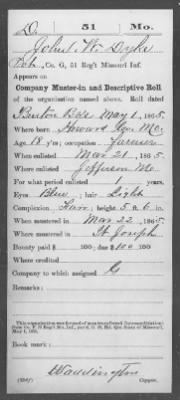 D. | 51 | Mo.
John W. Dyke
Pvt., Co. G, 51 Reg't Missouri Inf.
Appears on
Company Muster-in and Descriptive Roll
of the organization named above. Roll dated
Benton Bks May 1, 1865.
Where born Howard Co. Mo.
Age 18 y'rs; occupation Farmer
When enlisted Mar 21, 1865.
Where enlisted Jefferson Mo
For what period enlisted 1 years.
Eyes Blue; hair Light
Complexion Fair; height 5 ft. 6 in.
When mustered in Mar 22, 1865.
Where mustered in St Joseph
Bounty paid $ 100; due $ 100 100
Where credited
Company to which assigned G
Remarks:
Book mark:
Waddington
Copyist.